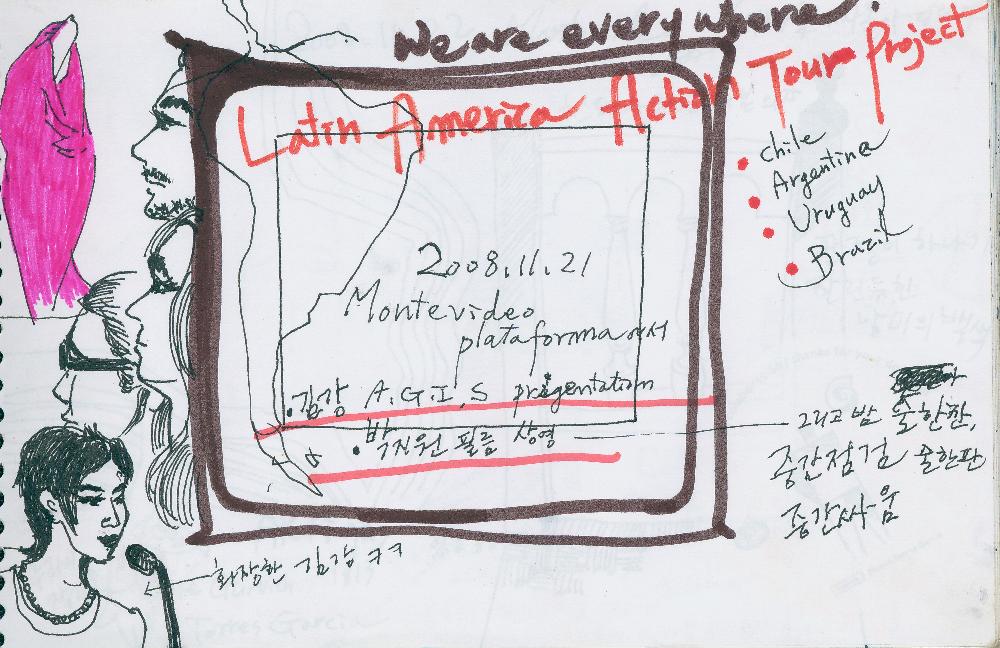 We are everywhere.
Latin America Action Tour Project
• chile
• Argentina
• Uruguay
• Brazil
2008.11.21
Montevideo
plataforma에서
• 김강 A.G.I.S presentation
• 박지원 필름 상영
그리고 밤 술한판,
중간점검 술한판
중간싸움
화장한 김강 ㅋㅋ
Torres Garcia